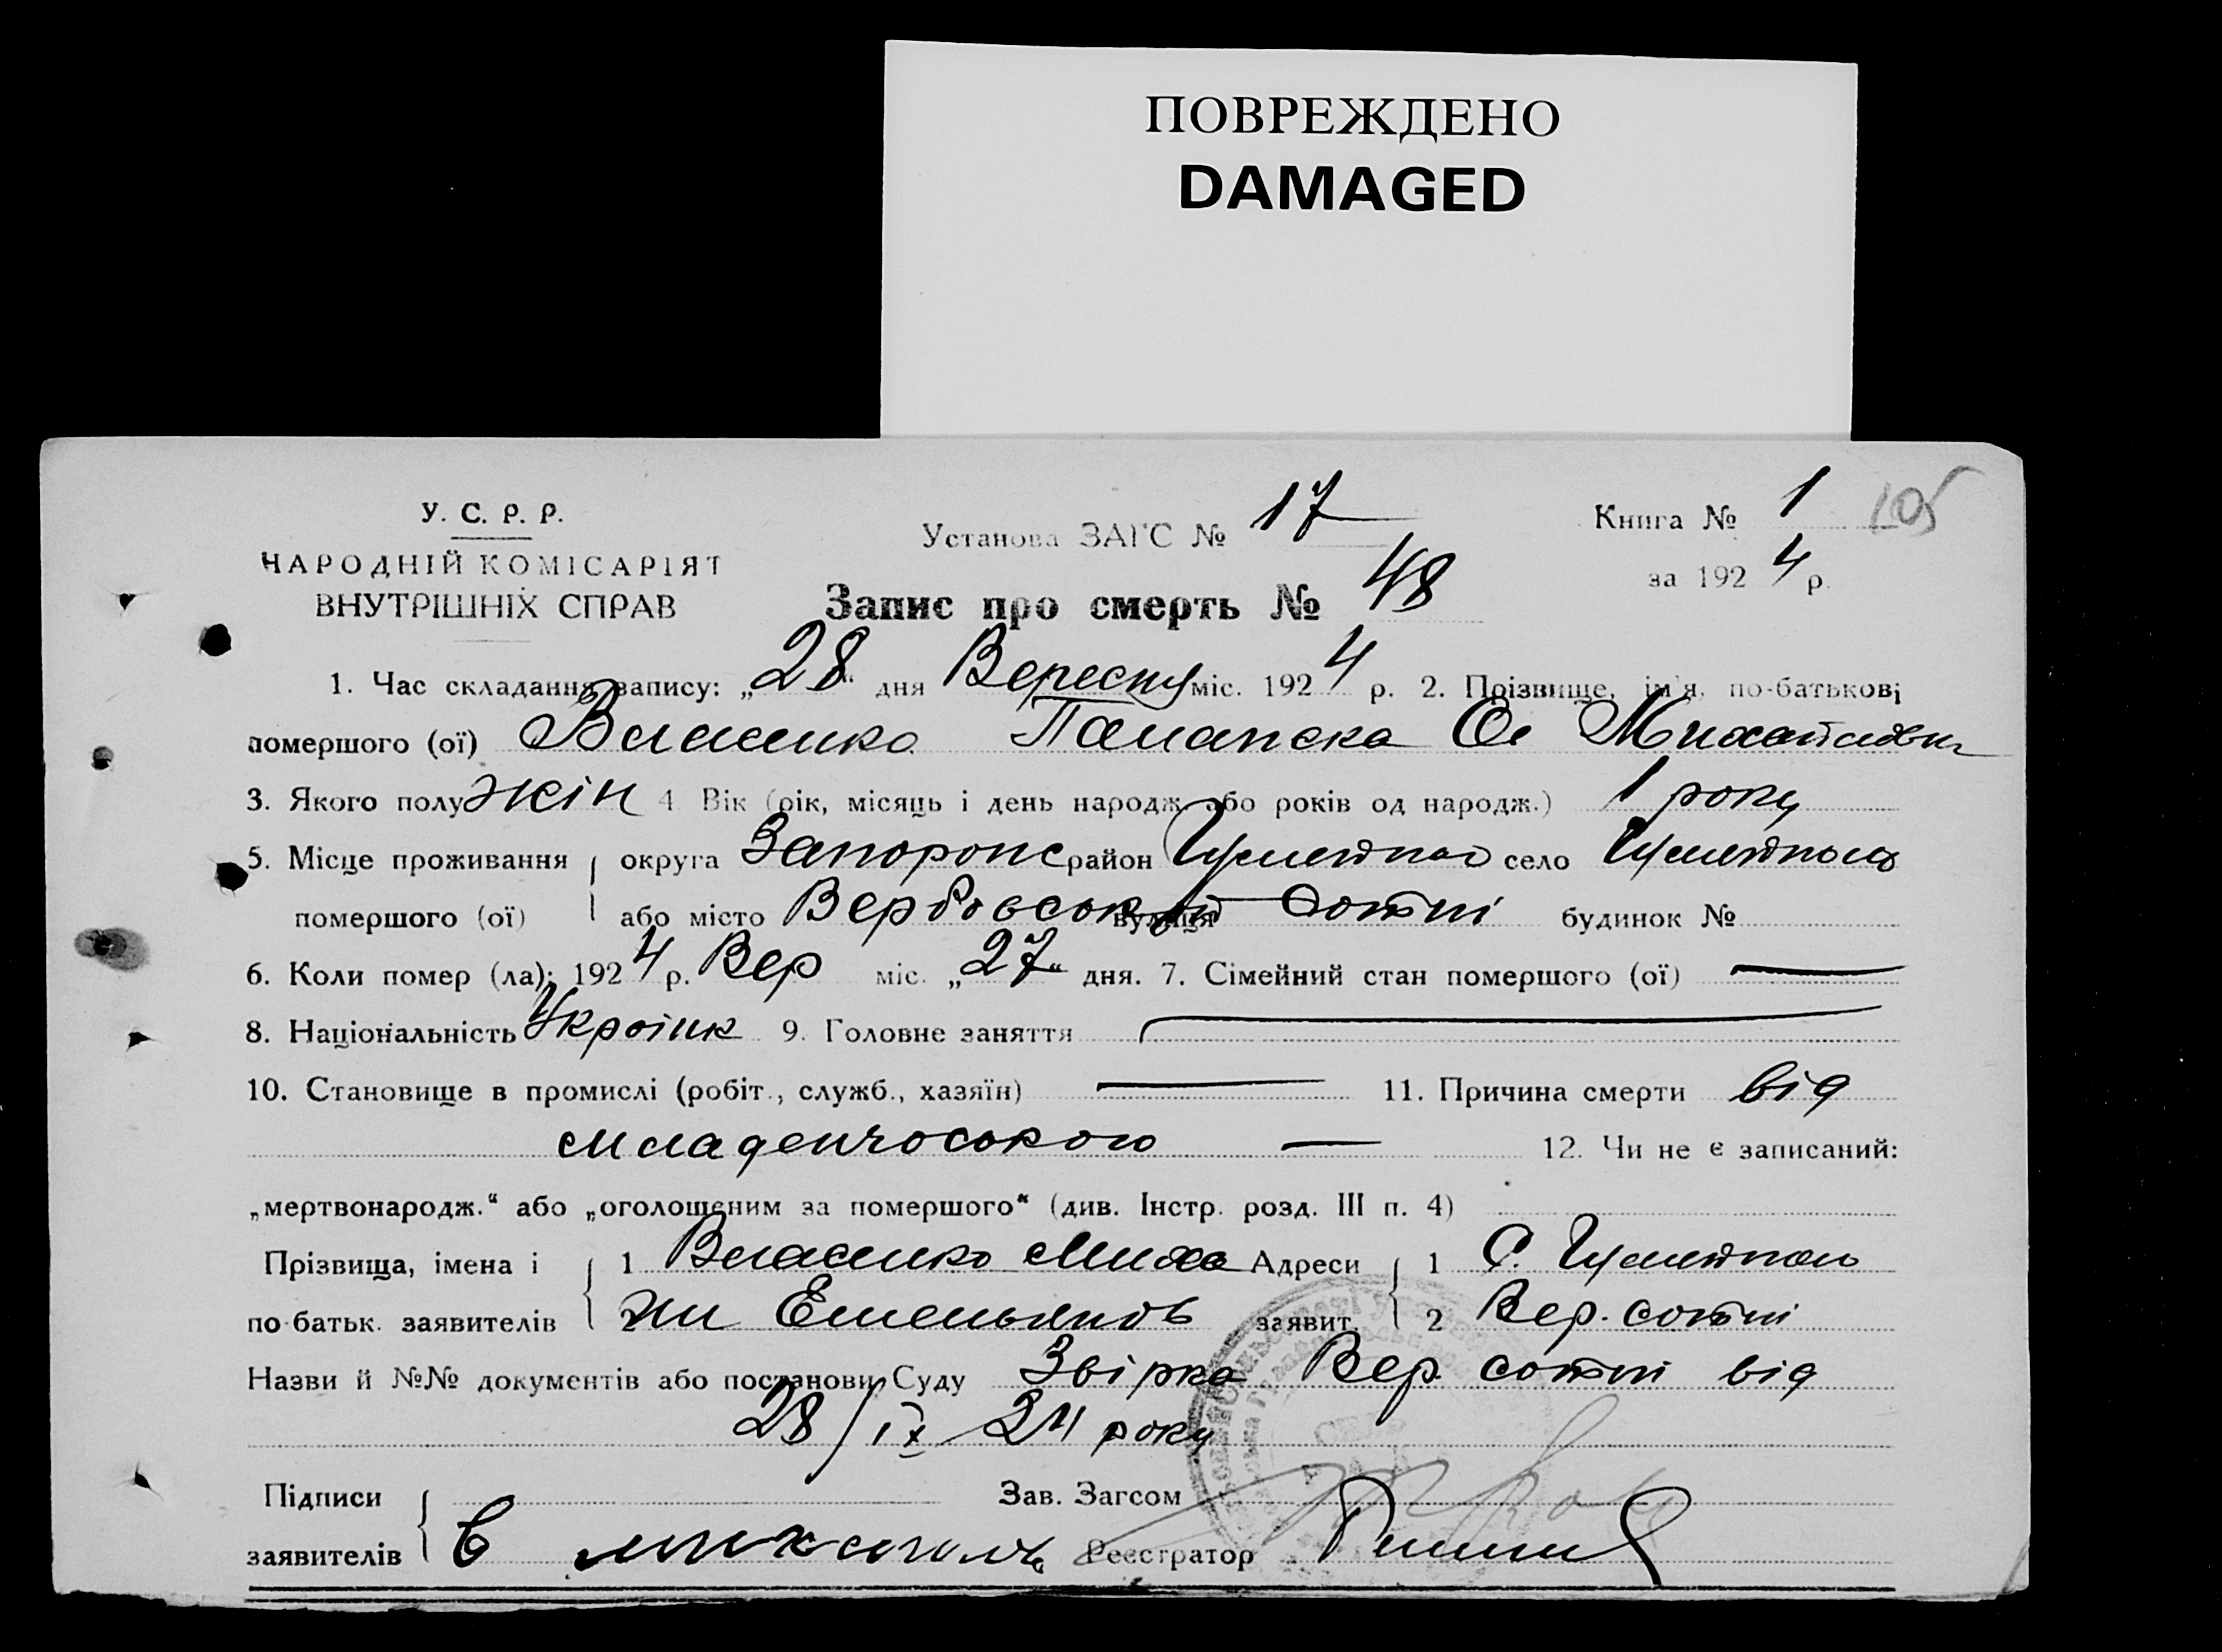 ПОВРЕЖДЕНО
DAMAGED
У. С. Р. Р.
НАРОДНІЙ КОМІСАРІЯТ
ВНУТРІШНІХ СПРАВ
Установа ЗАГС № 17
Книга № 1 105
за 1924 р.
Запис про смерть № 48
1. Час складання запису: „28“ дня Вересну міс. 1924 р. 2. Прізвище, ім'я, по-батькові
помершого (ої) Власенко
3. Якого полу жін 4 Вік (рік, місяць і день народж. або років од народж.) 1 року
5. Місце проживання округа Запоропс район село
помершого (ої) або місто Вербовськой вулиця Сотні будинок №
6. Коли помер (ла): 1924 р. Вер міс. „27“ дня. 7. Сімейний стан помершого (ої) —
8. Національність Україик 9. Головне заняття —
10. Становище в промислі (робіт., служб., хазяїн) — 11. Причина смерти від
младенчоського — 12. Чи не є записаний:
„мертвонародж.“ або „оголошеним за помершого“ (див. Інстр. розд. III п. 4)
Прізвища, імена і 1 Власенко Миха Адреси 1 С.
по-батьк. заявителів 2 Емельянов заявит. 2 Вер. сотні
Назви й №№ документів або постанови Суду Звірка Вер сотні від
28/IX 24 року
Підписи Зав. Загсом
заявителів В Реєстратор